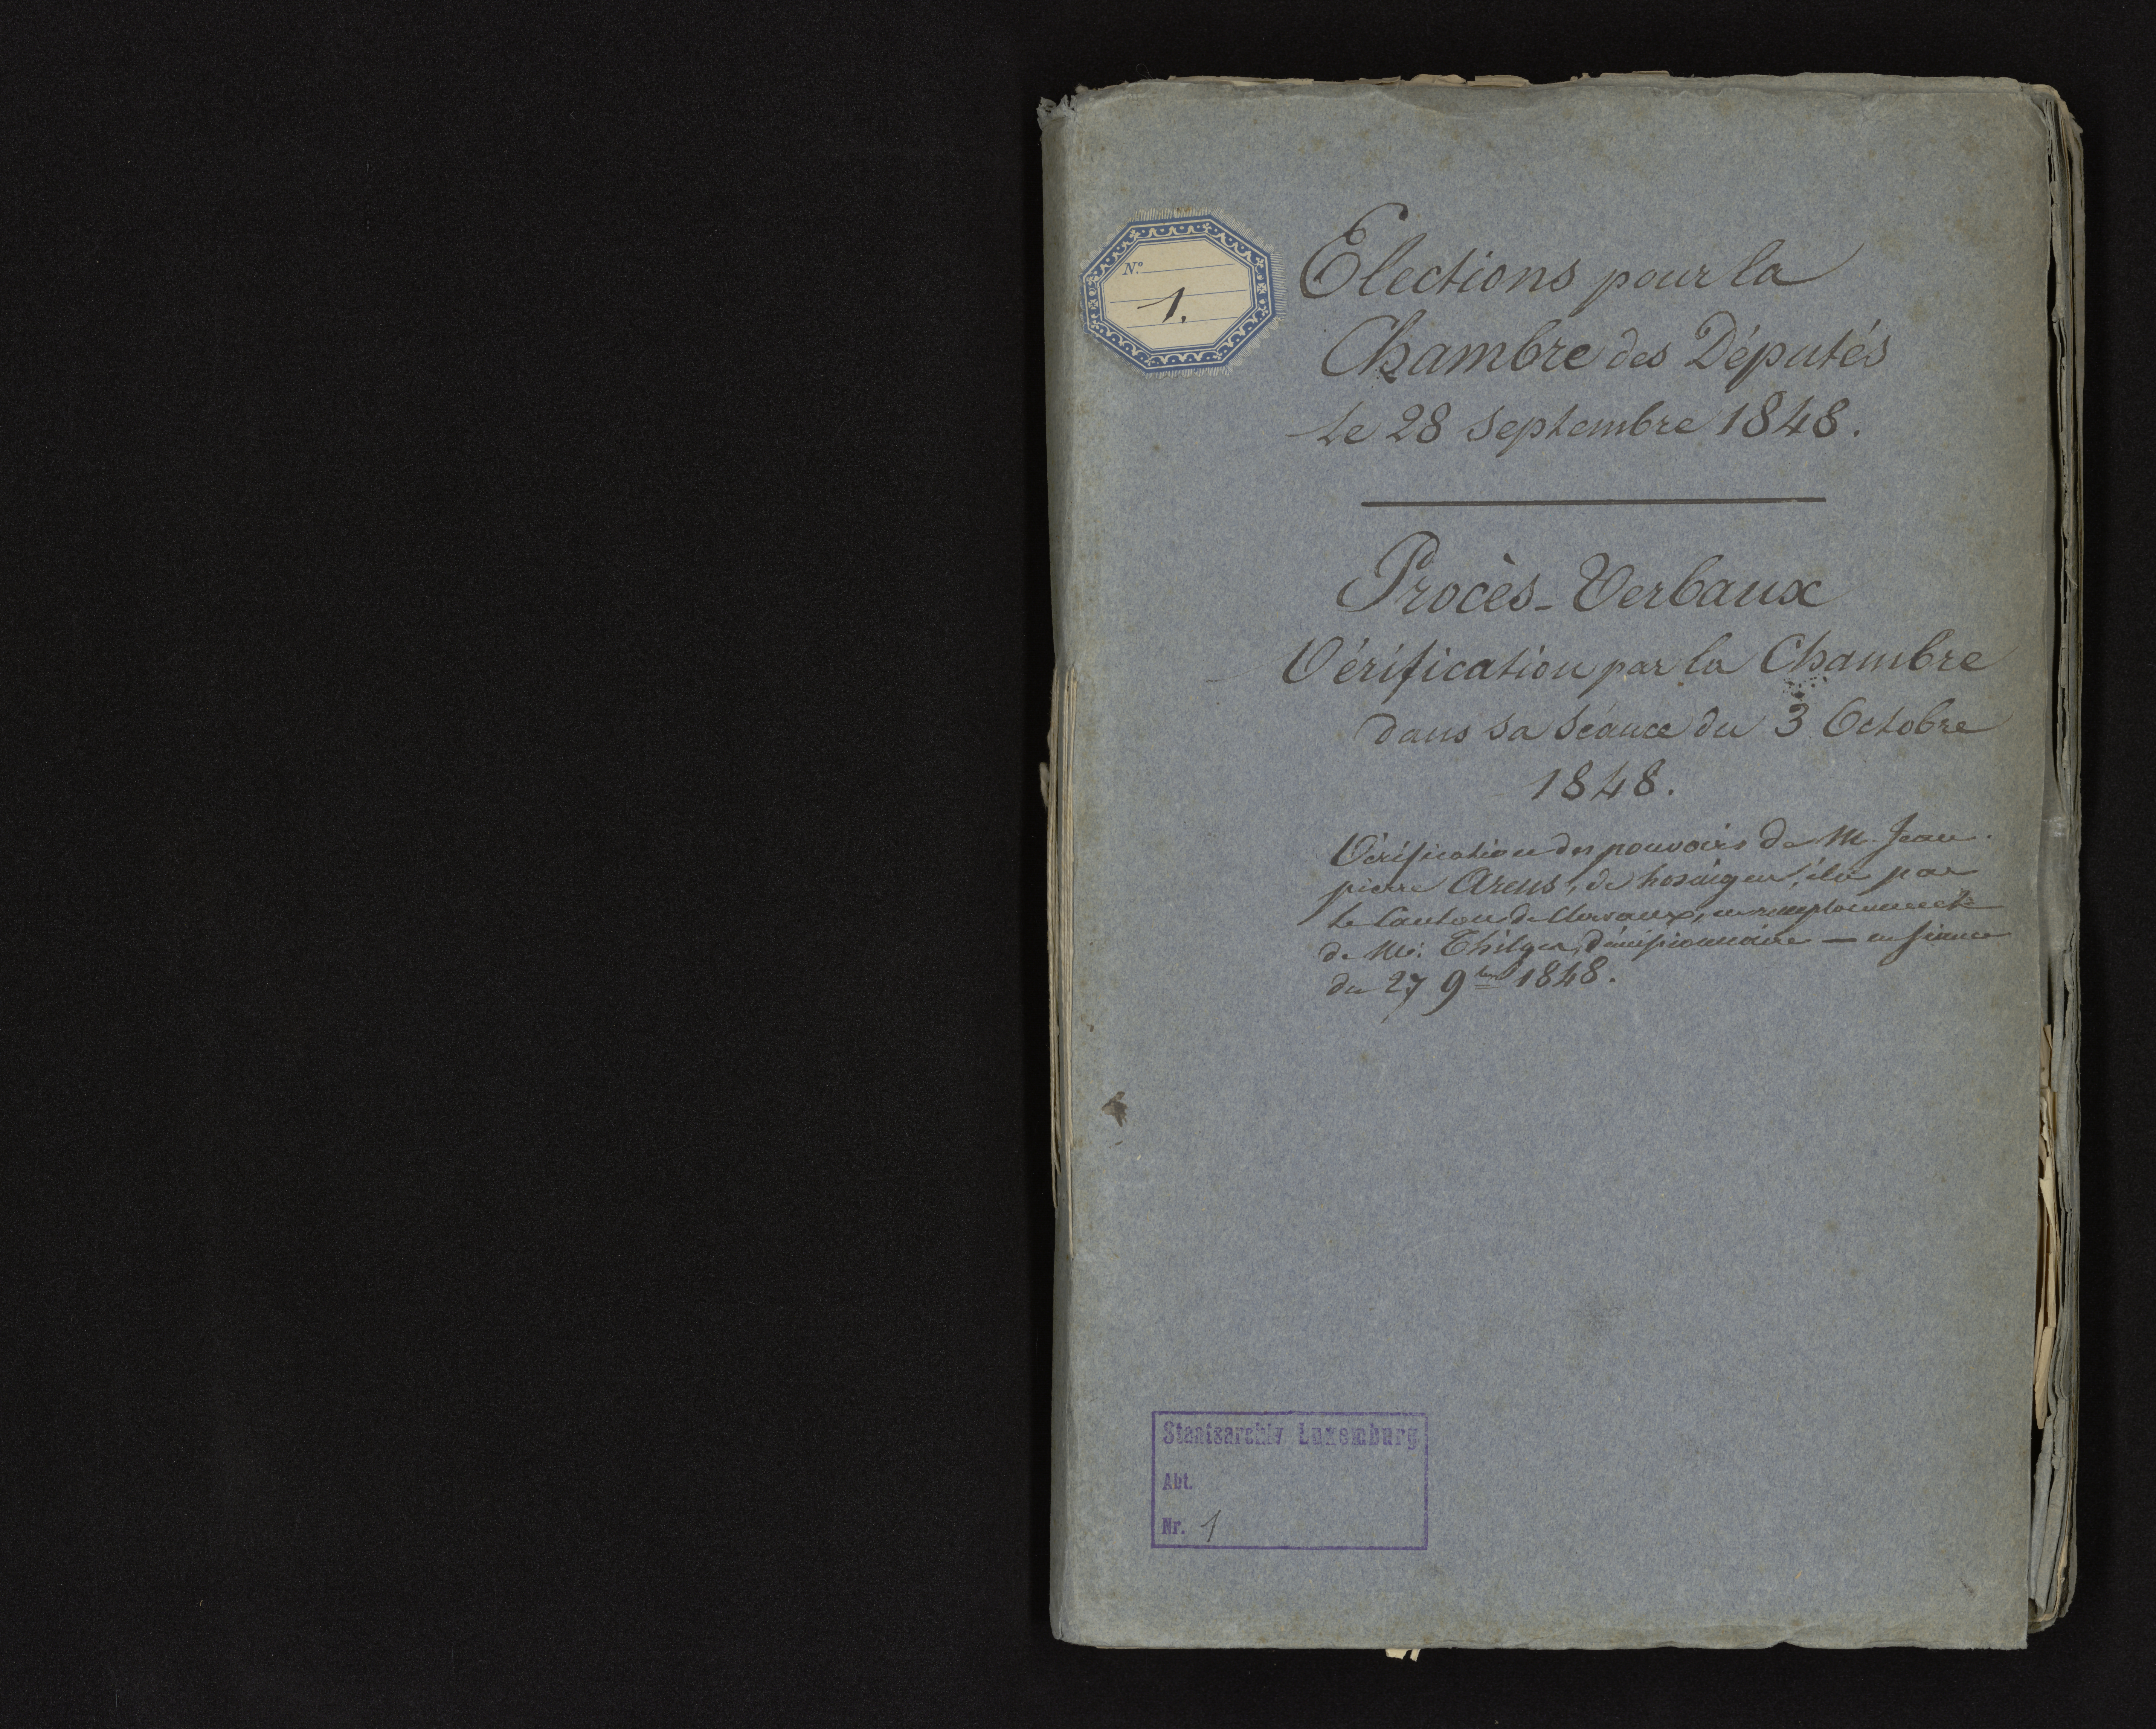 N.º
1.
Elections pour la
Chambre des Députés
le 28 Septembre 1848.
Procès-Verbaux
Vérification par la Chambre
dans sa séance du 3 Octobre
1848.
Vérification des pouvoirs de M. Jean
pierre Arens, de hosingen, élu par
le Canton de Clervaux, en remplacement
de Mr. Thilges, démissionnaire — en séance
du 27 9bre 1848.
Staatsarchiv Luxemburg
Abt.
Nr. 1